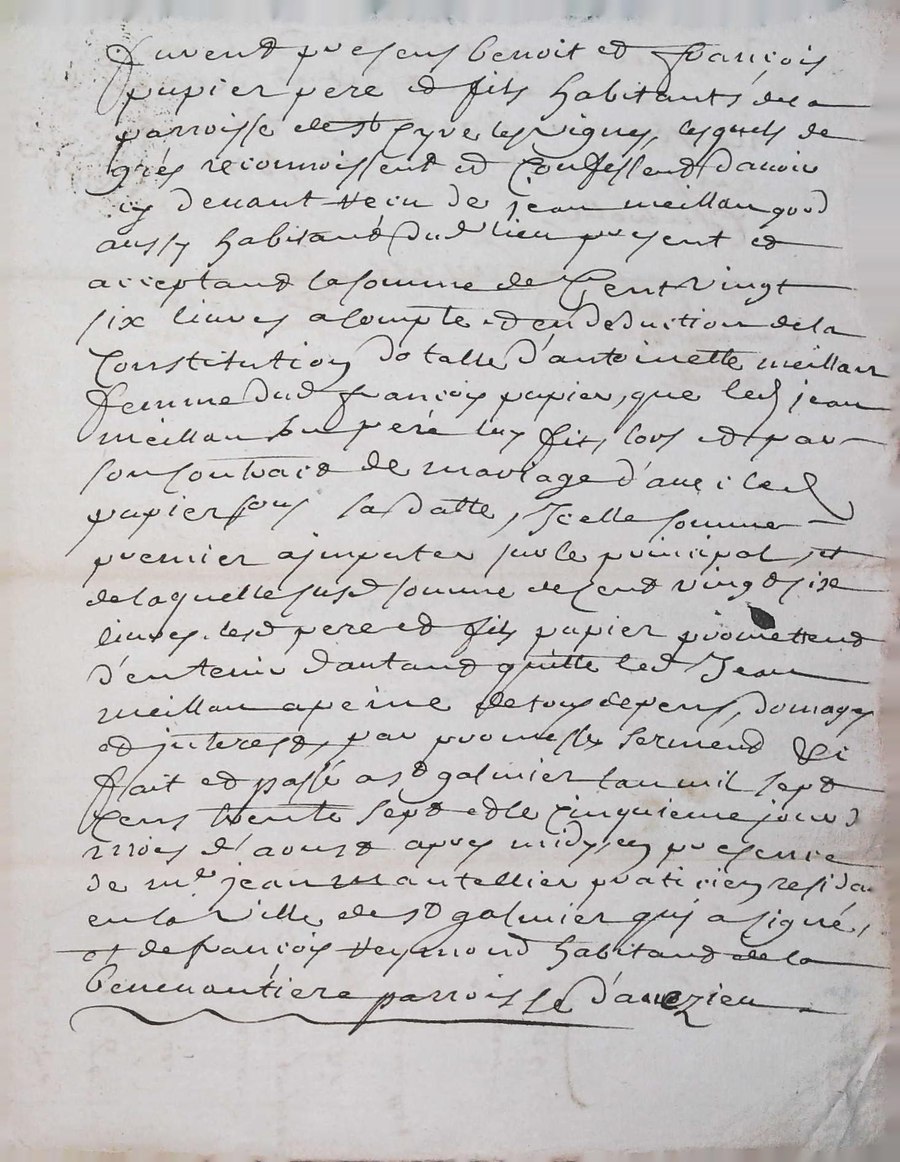 furent presens benoit et françois
papier pere et fils habitants de la
parroisse de st Cyre les Vignes, lesquels de
grés reconnoissent et Confessent d'avoir
cy devant receu de jean meillan
aussy habitand dud lieu present et
acceptand la somme de Cent vingt
six livres a compte et en deduction de la
Constitution dotalle d'antoinette meillan
femme dud françois papier, que led jean
meillan son pere luy fit, lors et par
son Contract de mariage d'avec led
papier sous sa datte, Icelle somme
premier a imputer sur le principal, et
de laquelle susd somme de Cent vingt six
livres, lesd pere et fils papier promettend
d'en tenir d'autand quitte led Jean
meillan a peine de tous depens, domages
et interests, par promesse, serment &c
fait et passé a st galmier l'an mil sept
Cens trente sept et le Cinquieme jour d
mois d'aoust apres midy, en presence
de me jean mantellier praticien resida
en la Ville de st galmier qui a signé,
et de françois reymond habitand de la
parroisse d'auezieu